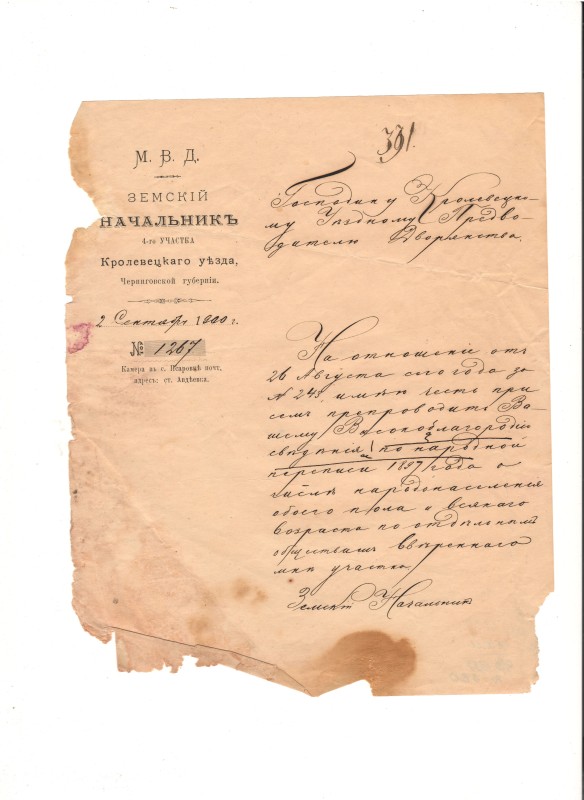 331.
М. В. Д.
ЗЕМСКІЙ
НАЧАЛЬНИКЪ
4-го УЧАСТКА
Кролевецкаго уѣзда,
Черниговской губерніи.
2 Сентября 1900 г.
№ 1267
Камера въ с. почт.
адресъ: ст. Авдѣевка.
Господину Кролевецко-
му Уѣздному Предво-
дителю Дворянства.
На отношеніе отъ
26 Августа сего года за
№ 243 имѣю честь при
семъ препроводить Ва-
шему Высокоблагородію
свѣдѣнія по народной
переписи 1897 года о
числѣ народонаселенія
обоего пола и всякаго
возраста по отдѣльнымъ
обществамъ ввѣреннаго
мнѣ участка,
Земскій Начальникъ